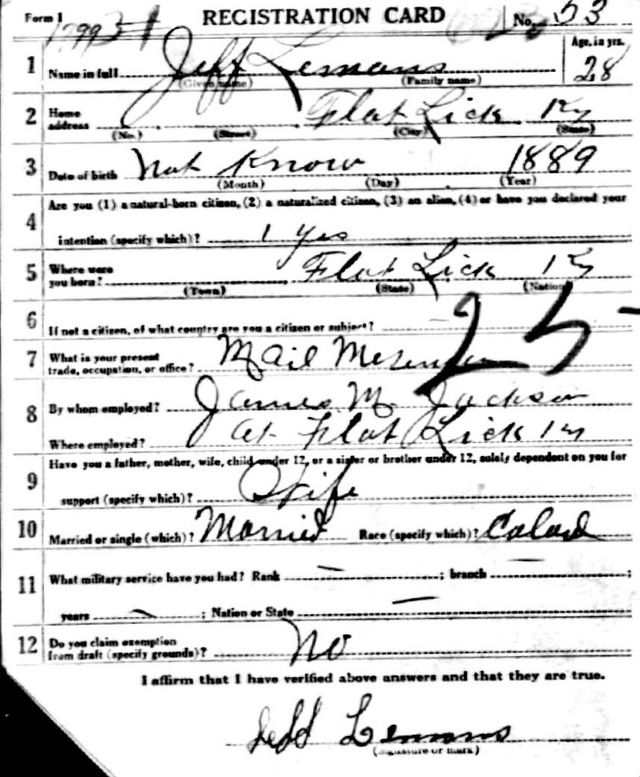 Form 1 REGISTRATION CARD No. 53
1 Name in full Jeff Lemans Age, in yrs. 28
(Given name) (Family name)
2 Home address Flat Lick Ky
(No.) (Street) (City) (State)
3 Date of birth Not Know 1889
(Month) (Day) (Year)
Are you (1) a natural-born citizen, (2) a naturalized citizen, (3) an alien, (4) or have you declared your
4 intention (specify which)? 1 Yes
5 Where were you born? Flat Lick Ky
(Town) (State) (Nation)
6 If not a citizen, of what country are you a citizen or subject?
25
7 What is your present trade, occupation, or office? Mail
8 By whom employed? James M. Jackson
Where employed? at Flat Lick Ky
Have you a father, mother, wife, child under 12, or a sister or brother under 12, solely dependent on you for
9 support (specify which)? Wife
10 Married or single (which)? Married Race (specify which)? Colord
11 What military service have you had? Rank ; branch ;
years ; Nation or State
12 Do you claim exemption from draft (specify grounds)? No
I affirm that I have verified above answers and that they are true.
Jeff Lemons
(Signature or mark)